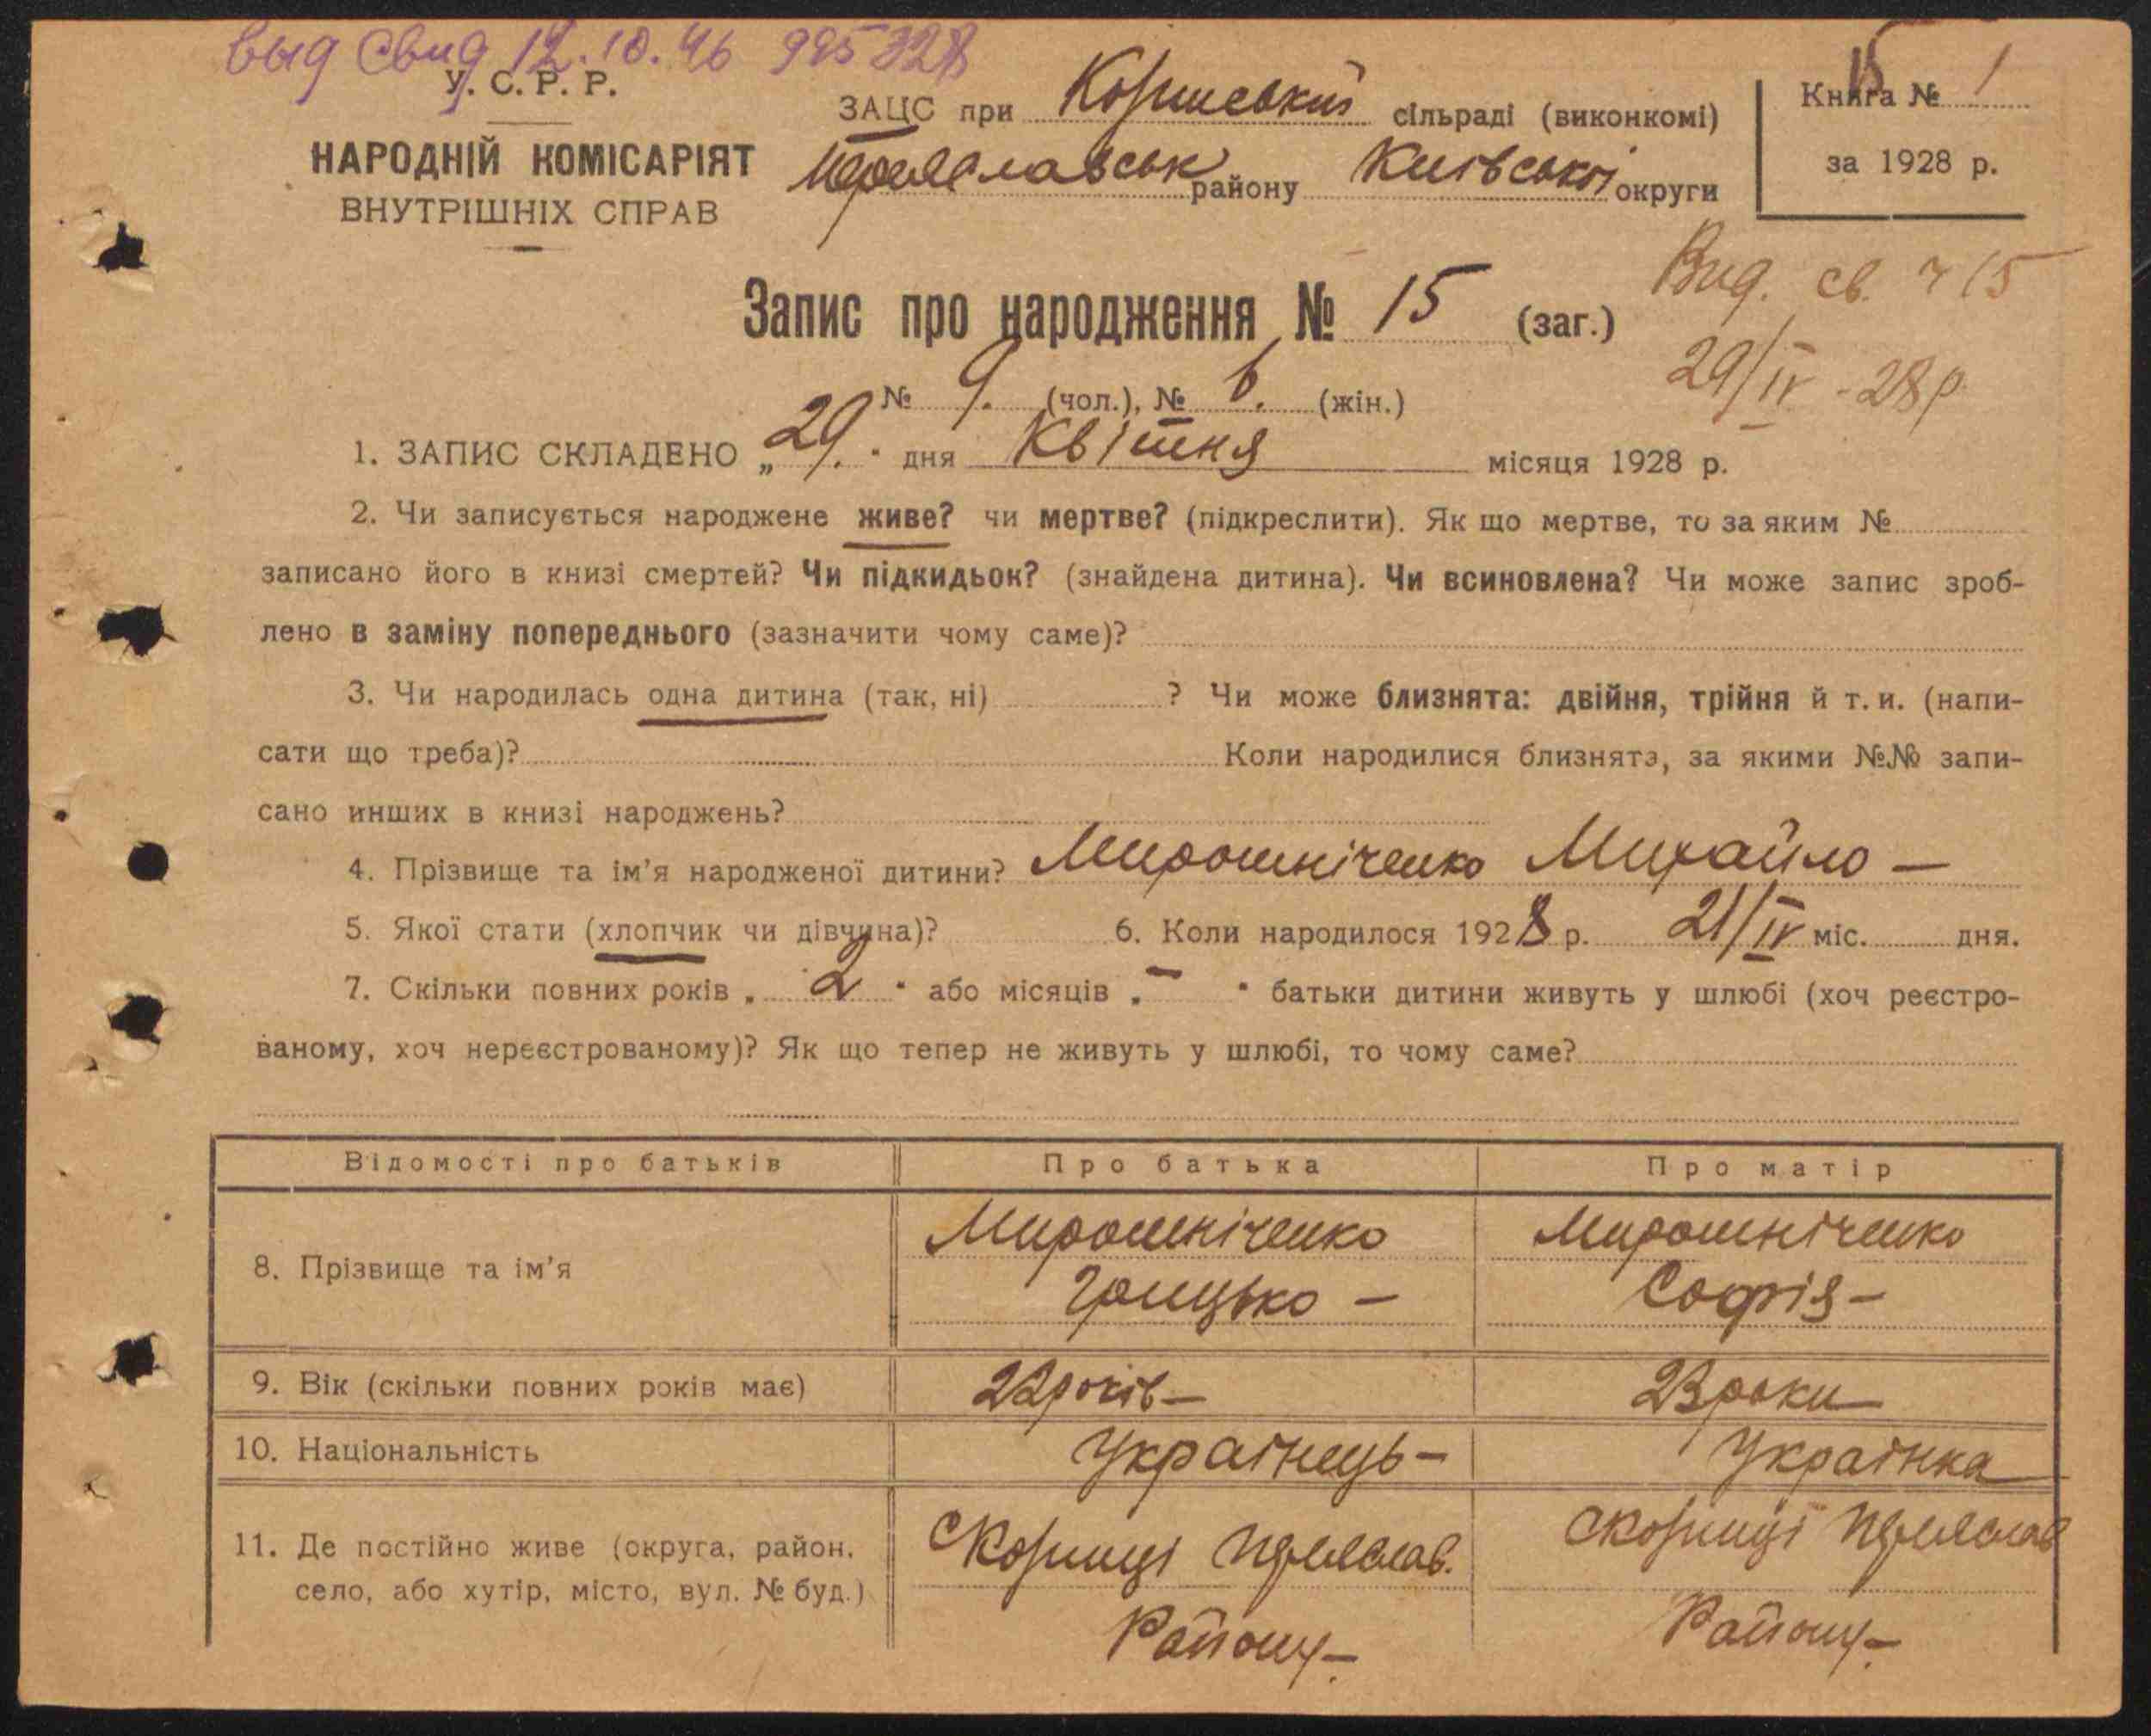 выд свид 12.10.46 995328
У. С. Р. Р.
НАРОДНІЙ КОМІСАРІЯТ
ВНУТРІШНІХ СПРАВ
ЗАЦС при Коринський сільраді (виконкомі)
Переяславськ району Київської округи
Книга № 1
за 1928 р.
15
Запис про народження № 15 (заг.)
Вид. св. ч 15
29/IV - 28 р.
№ 9. (чол.), № 6. (жін.)
1. ЗАПИС СКЛАДЕНО „29." дня Квітня місяця 1928 р.
2. Чи записується народжене живе? чи мертве? (підкреслити). Як що мертве, то за яким №
записано його в книзі смертей? Чи підкидьок? (знайдена дитина). Чи всиновлена? Чи може запис зроб-
лено в заміну попереднього (зазначити чому саме)?
3. Чи народилась одна дитина (так, ні) ? Чи може близнята: двійня, трійня й т. и. (напи-
сати що треба)? Коли народилися близнята, за якими №№ запи-
сано инших в книзі народжень?
4. Прізвище та ім'я народженої дитини? Мирошніченко Михайло —
5. Якої стати (хлопчик чи дівчина)? 6. Коли народилося 1928 р. 21/IV міс. дня.
7. Скільки повних років „ 2 " або місяців „ — " батьки дитини живуть у шлюбі (хоч реєстро-
ваному, хоч нереєстрованому)? Як що тепер не живуть у шлюбі, то чому саме?
Відомості про батьків Про батька Про матір
8. Прізвище та ім'я
Мирошніченко
Грицько —
Мирошніченко
Софія —
9. Вік (скільки повних років має) 22 років — 23 роки —
10. Національність Українець — Українка
11. Де постійно живе (округа, район,
село, або хутір, місто, вул. № буд.)
с Коринці Переяслав.
Району —
с Коринці Переяслав
Району —